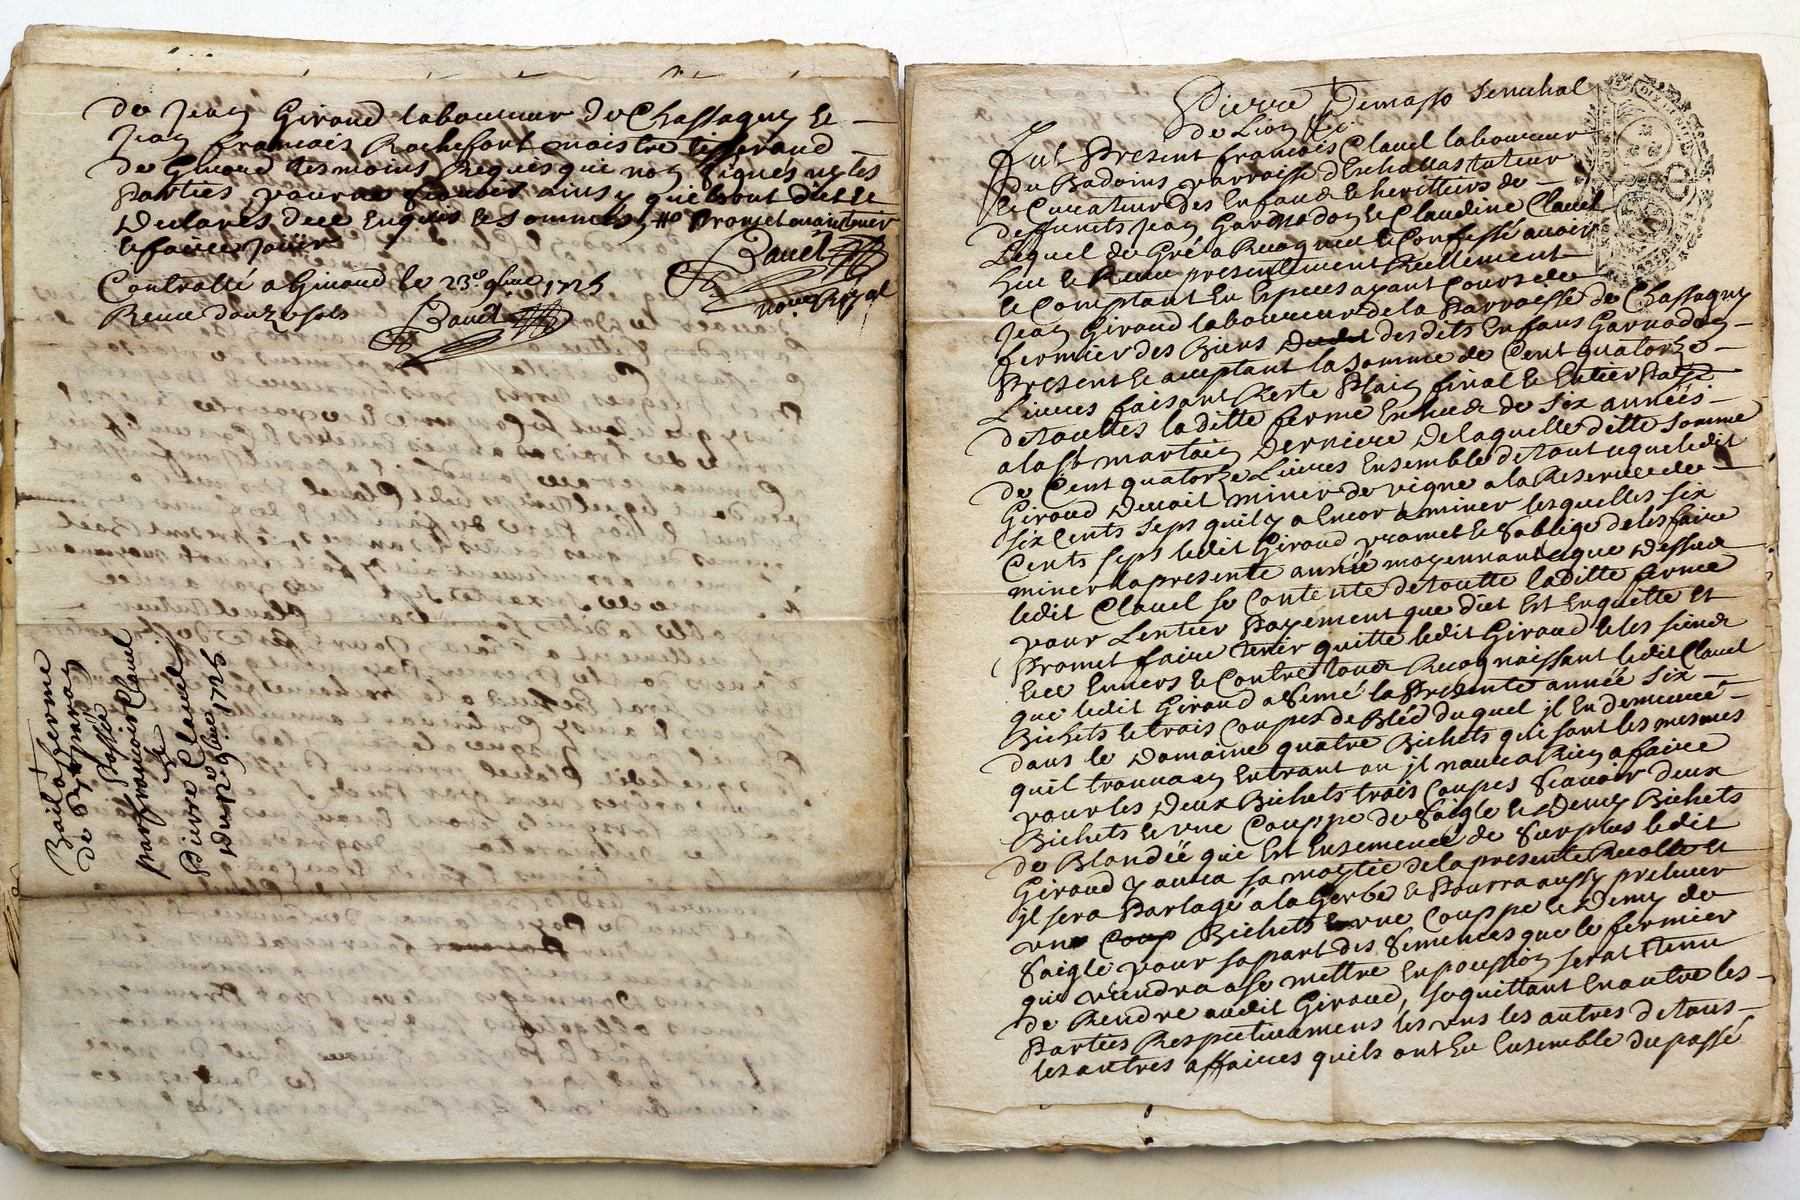 de Jean Giroud laboureur de Chassagny &
Jean francois Rochefort maistre tisserand
de Givord tesmoins Requis qui non signés ny les
Parties pour ne scavoir ainsy quils ont dict &
declarés de ce Enquis & sommés, promet maintenir
& faire jouir
Bauet
no.re Royal
Controllé a Givord le 23.e 9bre 1725
Receu douze sols
Bauet
Bail a ferme
de
Passée
par francois Clauel
a
Pierre Clauel
du 9bre 1725
Pierre Demasso Senechal
de Lion
Fut Present francois Clauel laboureur
du Badoins parroisse d'Eschallas tuteur
& Curateur des Enfans & heritiers de
deffunts Jean Garnodon & Claudine Clauel
Lequel de Gré a Recognu & Confessé auoir
heu & Receu presentement Reellement
& Comptant En Especes ayant Cours de
Jean Giroud laboureur de la Parroisse de Chassagny
fermier des Biens desdits Enfans Garnodon
Present & acceptant la somme de Cent quatorze
Liures faisant Reste Plain final & Entier
de touttes laditte ferme de six années
a la st martin derniere de laquelle ditte somme
de Cent quatorze Liures Ensemble de tout ce que ledit
Giroud deuoit miner de vigne a la Reserue de
six Cents seps quil y a Encor a miner lesquelles six
Cents seps ledit Giroud promet & soblige de les faire
miner la presente année moyennant ce que dessus
ledit Clauel se Contente de toutte laditte ferme
pour Lentier Payement que dict Est Enquitte Et
Promet faire tenir quitte ledit Giroud & les siens
Enuers & Contre tous Recognoissant ledit Clauel
que ledit Giroud a semé la Presente année six
Bichets & trois Coupes de Bled duquel il En demeure
dans le Domaine quatre Bichets qui sont les mesmes
quil trouua En Entrant ou il naura Rien a faire
pour les deux Bichets trois Coupes scauoir deux
Bichets & vne Couppe de saigle & demy Bichets
de Blondée qui Est Ensemencé de surplus ledit
Giroud y aura sa moytié de la presente Recolte Et
il sera Partagé a la Gerbe & Pourra aussy preleuer
vn Bichets vne Couppe & demy de
saigle pour sa part des semences que le fermier
qui viendra a se mettre En possession serat tenu
de Rendre audit Giroud, se quittant En outre les
Parties Respectiuement les vns les autres de tous
les autres affaires quils ont Eu Ensemble du passé